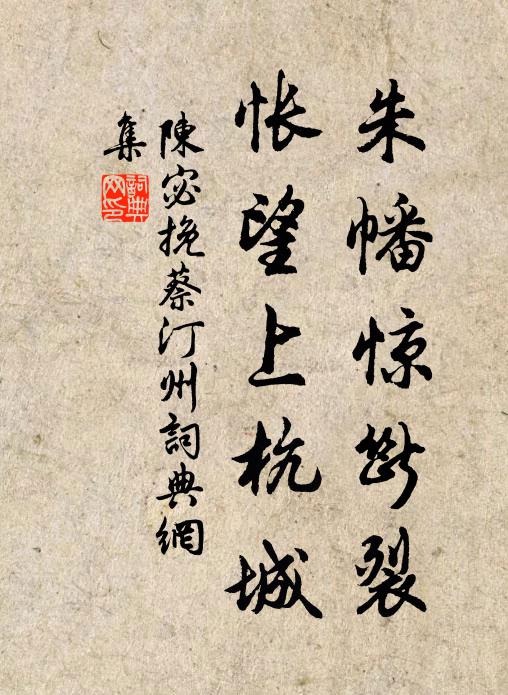 朱幡惊断裂
怅望上杭城
陳宓挽蔡汀州詞典網
集
詞典网印